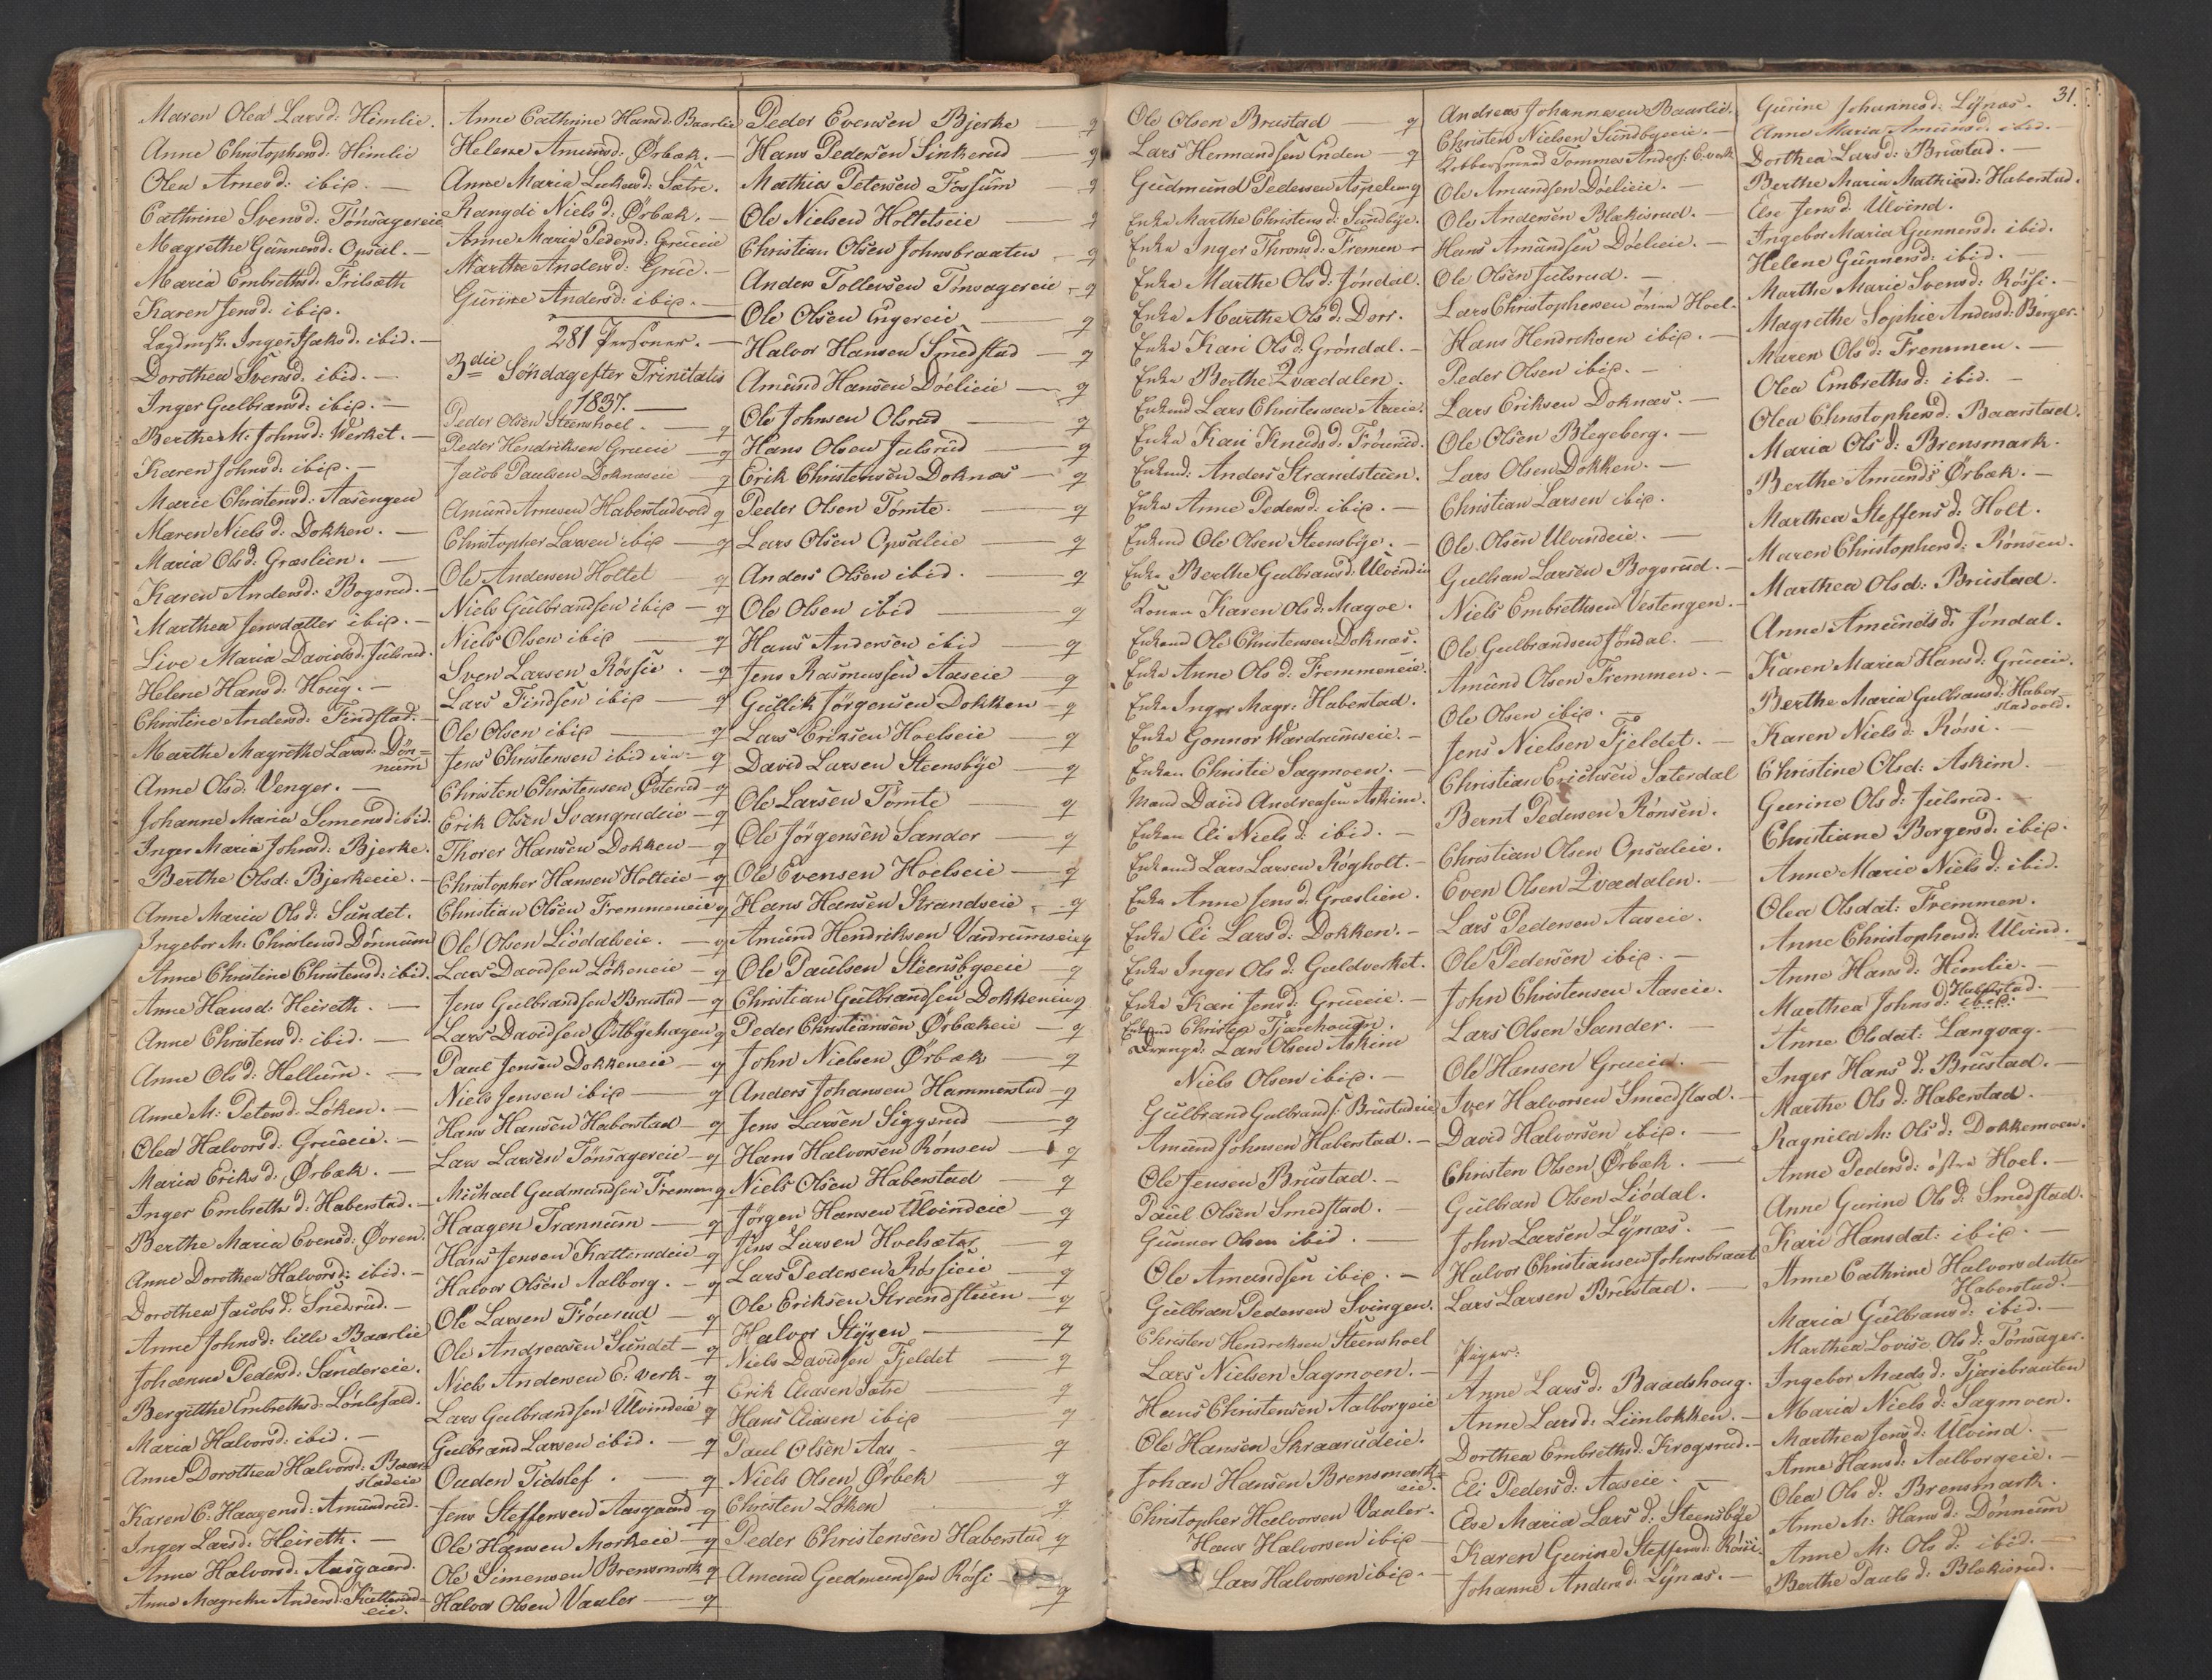 Maren Olea Larsd: Himlie.
Anne Christophersd: Himlie
Olea Arnesd: ibid. —
Cathrine Svensd: Tönsagereie
Magrethe Gunnersd: Opsal. —
Maria Embrethsd: Frilsæth
Karen Jensd: ibid.
Inger Isaksd: ibid. —
Dorothea Svensd. ibid. —
Inger Gulbransd: ibid. —
Berthe M: Johnsd: Werket. —
Karen Johnsd: ibid. —
Marie Christensd: Aasengen
Maren Nielsd: Dokken. —
Maria Olsd: Græslien. —
Karen Andersd: Bogsrud. —
Marthea Jensdatter ibid. —
Live Maria Davidsd: Julsrud.
Helene Hansd: Houg. —
Christine Andersd: Findstad. —
Marthe Magrethe Larsd: Dön=
num
Anne Olsd: Venger. —
Johanne Maria Simensd ibid.
Inger Maria Johnsd: Bjerke.
Berthe Olsd: Bjerkeeie. —
Anne Maria Olsd: Sundet.
Ingebor M: Christensd Dönnum
Anne Christine Christensd: ibid.
Anne Hansd: Heireth. —
Anne Christensd: ibid. —
Anne Olsd: Hellum. —
Anne M: Petersd: Löken. —
Olea Halvorsd: Grueeie. —
Maria Eriksd: Ørbæk. —
Inger Embrethsd: Haberstad. —
Berthe Maria Evensd: Øvren.
Anne Dorothea Halvorsd: ibid. —
Dorothea Jacobsd: Snedrud. —
Anne Johnsd: lille Baarlie
Johanne Pedersd: Sandereie.
Bergitthe Embrethsd: Lönlefald.
Maria Halvorsd: ibid. —
Anne Dorothea Halvorsd: Baar=
stadeie
Karen E: Haagensd: Amundrud.
Inger Larsd: Heireth. —
Anne Halvorsd: Aasgaard.
Anne Magrethe Andersd: Katterud=
eie.
Anne Cathrine Hansd: Baarlie
Helene Amundsd: Ørbæk. —
Anne Maria Lukasd: Sætre.
Rangdi Nielsd: Ørbæk. —
Anne Maria Pedersd: Grueeie
Marthe Andersd: Grue. —
Gurine Andersd: ibid. —
281 Personer. —
3die Söndag efter Trinitatis
1837. —
Peder Olsen Steenshoel. — g
Peder Hendriksen Grueeie — g
Jacob Paulsen Doknæseie — g
Amund Arnesen Haberstadvold g
Christopher Larsen ibid — g
Ole Andersen Holtet — g
Niels Gulbrandsen ibid — g
Niels Olsen ibid — g
Sven Larsen Rössie. — g
Lars Findsen ibid — g
Ole Olsen ibid — g
Jens Christensen ibid — g
Christen Christensen Østerud — g
Erik Olsen Svangrudeie — g
Thorer Hansen Dokken — g
Christopher Hansen Holteie — g
Christian Olsen Fremmeneie g
Ole Olsen Liödalseie. — g
Lars Davidsen Lökeneie — g
Jens Gulbrandsen Brustad — g
Lars Davidsen Østbyehagen g
Paul Jensen Dokkeneie — g
Niels Jensen ibid — g
Hans Hansen Haberstad — g
Lars Larsen Tönsagereie — g
Michael Gudmundsen Fremen g
Haagen Trannum — g
Hans Jensen Katterudeie — g
Halvor Olsen Aalborg. — g
Ole Larsen Fröurud — g
Ole Andreasen Sundet — g
Niels Andersen E: Verk. — g
Lars Gulbrandsen Ulvindeie g
Gulbrand Larsen ibid. — g
Ouden Tidslef. — g
Jens Steffensen Aasgaard — g
Ole Hansen Morkeie — g
Ole Simensen Brensmork g
Halvor Olsen Vauler — g
Peder Evensen Bjerke — g
Hans Pedersen Sinkerud — g
Mathias Petersen Fossum — g
Ole Nielsen Holtetseie — g
Christian Olsen Johnsbraaten — g
Anders Tollevsen Tönsagereie — g
Ole Olsen Engereie — g
Halvor Hansen Smedstad — g
Amund Hansen Döelieie — g
Ole Johnsen Olsrud — g
Hans Olsen Julsrud — g
Erik Christensen Doknæs — g
Peder Olsen Tomte. — g
Lars Olsen Opsaleie — g
Anders Olsen ibid. — g
Ole Olsen ibid — g
Hans Andersen ibid — g
Jens Rasmussen Aaseie — g
Gullik Jörgensen Dokken — g
Lars Eriksen Hoelseie — g
David Larsen Steensbye — g
Ole Larsen Tömte — g
Ole Jörgensen Sander — g
Ole Evensen Hoelseie — g
Hans Hansen Strandseie — g
Amund Hendriksen Vardrumseie g
Ole Paulsen Steensbyeeie — g
Christian Gulbrandsen Dokkeneie g
Peder Christiansen Ørbækeie — g
John Nielsen Ørbæk — g
Anders Johansen Hammerstad — g
Jens Larsen Siggerud — g
Hans Halvorsen Rönsen — g
Niels Olsen Haberstad — g
Jörgen Hansen Ulvindeie — g
Jens Larsen Hoelsæter — g
Lars Pedersen Rössieie — g
Ole Eriksen Strandstuen — g
Halvor Styren — g
Niels Davidsen Fjeldet — g
Erik Eliasen Sætre — g
Hans Eliasen ibid — g
Paul Olsen Aas — g
Niels Olsen Ørbek — g
Christen Löken — g
Peder Christensen Haberstad g
Amund Gudmundsen Rössi — g
31.
Ole Olsen Brustad — g
Lars Hermandsen Enden — g
Gudmund Pedersen Aspelung
Enke Marthe Christensd: Sundbye.
Enke Inger Thronsd: Fremen —
Enke Marthe Olsd: Jöndal.
Enke Marthe Olsd: Dorr.
Enke Kari Olsd: Gröndal. —
Enke Berthe Qvædalen.
Enkmd Lars Christensen Aaseie.
Enke Kari Knudsd: Fröurud.
Enkmd: Anders Strandstuen.
Enke Anne Pedersd: ibid. —
Enkmd Ole Olsen Steensbye. —
Enke Berthe Gulbransd: Ulvindeie
Konen Karen Olsd: Magoe.
Enkmd Ole Christensen Doknæs.
Enke Anne Olsd: Fremmeneie.
Enke Inger Magr: Haberstad.
Enke Gonnor Wardrumseie. —
Enken Christie Sagmoen. —
Mand David Andreasen Askim.
Enken Eli Nielsd: ibid. —
Enkmd Lars Larsen Rögholt. —
Enke Anne Jensd: Græslien.
Enke Eli Larsd: Dokken. —
Enke Inger Olsd: Guldverket.
Enke Kari Jensd: Grueeie. —
Enkmd Christen Tjærehougen.
Drenge: Lars Olsen Askim
Niels Olsen ibid. —
Gulbrand Gulbrands: Brustadeie
Amund Johnsen Haberstad. —
Ole Jensen Brustad. —
Paul Olsen Smedstad. —
Gunnor Olsen ibid. —
Ole Amundsen ibid. —
Gulbran Pedersen Svingen.
Christen Hendriksen Steenshoel
Lars Nielsen Sagmoen. —
Hans Christensen Aalborgeie
Ole Hansen Skraarudeie.
Johan Hansen Brensmork=
eie.
Christopher Halvorsen Vauler.
Hans Halvorsen ibid —
Lars Halvorsen ibid. —
Andreas Johannesen Baarlie.
Christen Nielsen Sundbyeeie. —
Kobbersmed Tommes Anders: E: verk
Ole Amundsen Döelieie. —
Ole Andersen Blækisrud. —
Hans Amundsen Döelieie. —
Ole Olsen Julsrud. —
Lars Christophersen övre Hoel.
Hans Hendriksen ibid. —
Peder Olsen ibid. —
Lars Eriksen Doknæs. —
Ole Olsen Blegeberg. —
Lars Olsen Dokken. —
Christian Larsen ibid.
Ole Olsen Ulvindeie. —
Gulbran Larsen Bogsrud. —
Niels Embrethsen Vestengen. —
Ole Gulbrandsen Jöndal. —
Amund Olsen Fremmen. —
Ole Olsen ibid. —
Jens Nielsen Fjeldet. —
Christian Erichsen Saterdal
Bernt Pedersen Rönsen.
Christian Olsen Opsaleie.
Even Olsen Qvædalen. —
Lars Pedersen Aaseie.
Ole Pedersen ibid. —
John Christensen Aaseie.
Lars Olsen Sander. —
Ole Hansen Grueie. —
Iver Halvorsen Smedstad. —
David Halvorsen ibid. —
Christen Olsen Ørbæk. —
Gulbran Olsen Liödal.
John Larsen Lynæs. —
Halvor Christiansen Johnsbraat
Lars Larsen Brustad. —
Piger:
Anne Larsd: Baadshoug.
Anne Larsd: Liinlokken. —
Dorthea Embrethsd: Krogsrud. —
Eli Pedersd: Aaseie. —
Else Maria Larsd: Steensbye
Karen Gurine Steffensd: Rössie.
Johanne Andersd: Lynæs. —
Gurine Johannesd: Lynæs. —
Anne Maria Amundsd: ibid. —
Dorthea Larsd: Brustad. —
Berthe Maria Mathiesd: Haberstad.
Else Jensd: Ulvind.
Ingebor Maria Gunnersd: ibid.
Helene Gunnersd: ibid. —
Marthe Marie Svensd: Rössi. —
Magrethe Sophie Andersd: Berger.
Maren Olsd: Fremmen. —
Olea Embrethsd: ibid. —
Olea Christophersd: Baarstad.
Maria Olsd: Brensmark.
Berthe Amunds Ørbæk. —
Marthea Steffensd: Holt.
Maren Christophersd: Rönsen.
Marthea Olsd: Brustad.
Anne Amundsd: Jöndal.
Karen Maria Hansd: Grueeie.
Berthe Maria Gulbransd: Haber=
stadvold.
Karen Nielsd: Rönsi. —
Christine Olsd: Askim.
Gurine Olsd: Julsrud. —
Christiane Borgersd: ibid.
Anne Marie Nielsd: ibid.
Olea Olsdat: Fremmen.
Anne Christophersd: Ulvind. —
Anne Hansd: Himlie. —
Marthea Johnsd: Haberstad. —
Anne Olsdat: Langvag.
Inger Hansd: Brustad. —
Marthe Olsd: Haberstad.
Ragnild M: Olsd: Dokkemoen.
Anne Pedersd: östre Hoel. —
Anne Gurine Olsd: Smedstad.
Kari Hansdat: ibid. —
Anne Cathrine Halvorsdatter
Haberstad. —
Maria Gulbransd: ibid. —
Marthea Lovise Olsd: Tönsager.
Ingebor Madsd: Tjærebraaten
Maria Nielsd: Sagmoen.
Marthea Jensd: Ulvind. —
Anne Hansd: Aalborgeie. —
Olea Olsd: Brensmark.
Anne M: Hansd: Dönnum
Anne M: Olsd: ibid. —
Berthe Paulsd: Blækisrud. —